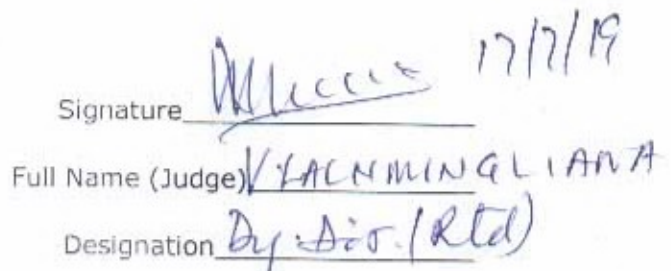 Signature 17/7/19
Full Name (Judge) V LALNMINGLIANA
Designation Dy. Dir. (Rtd)